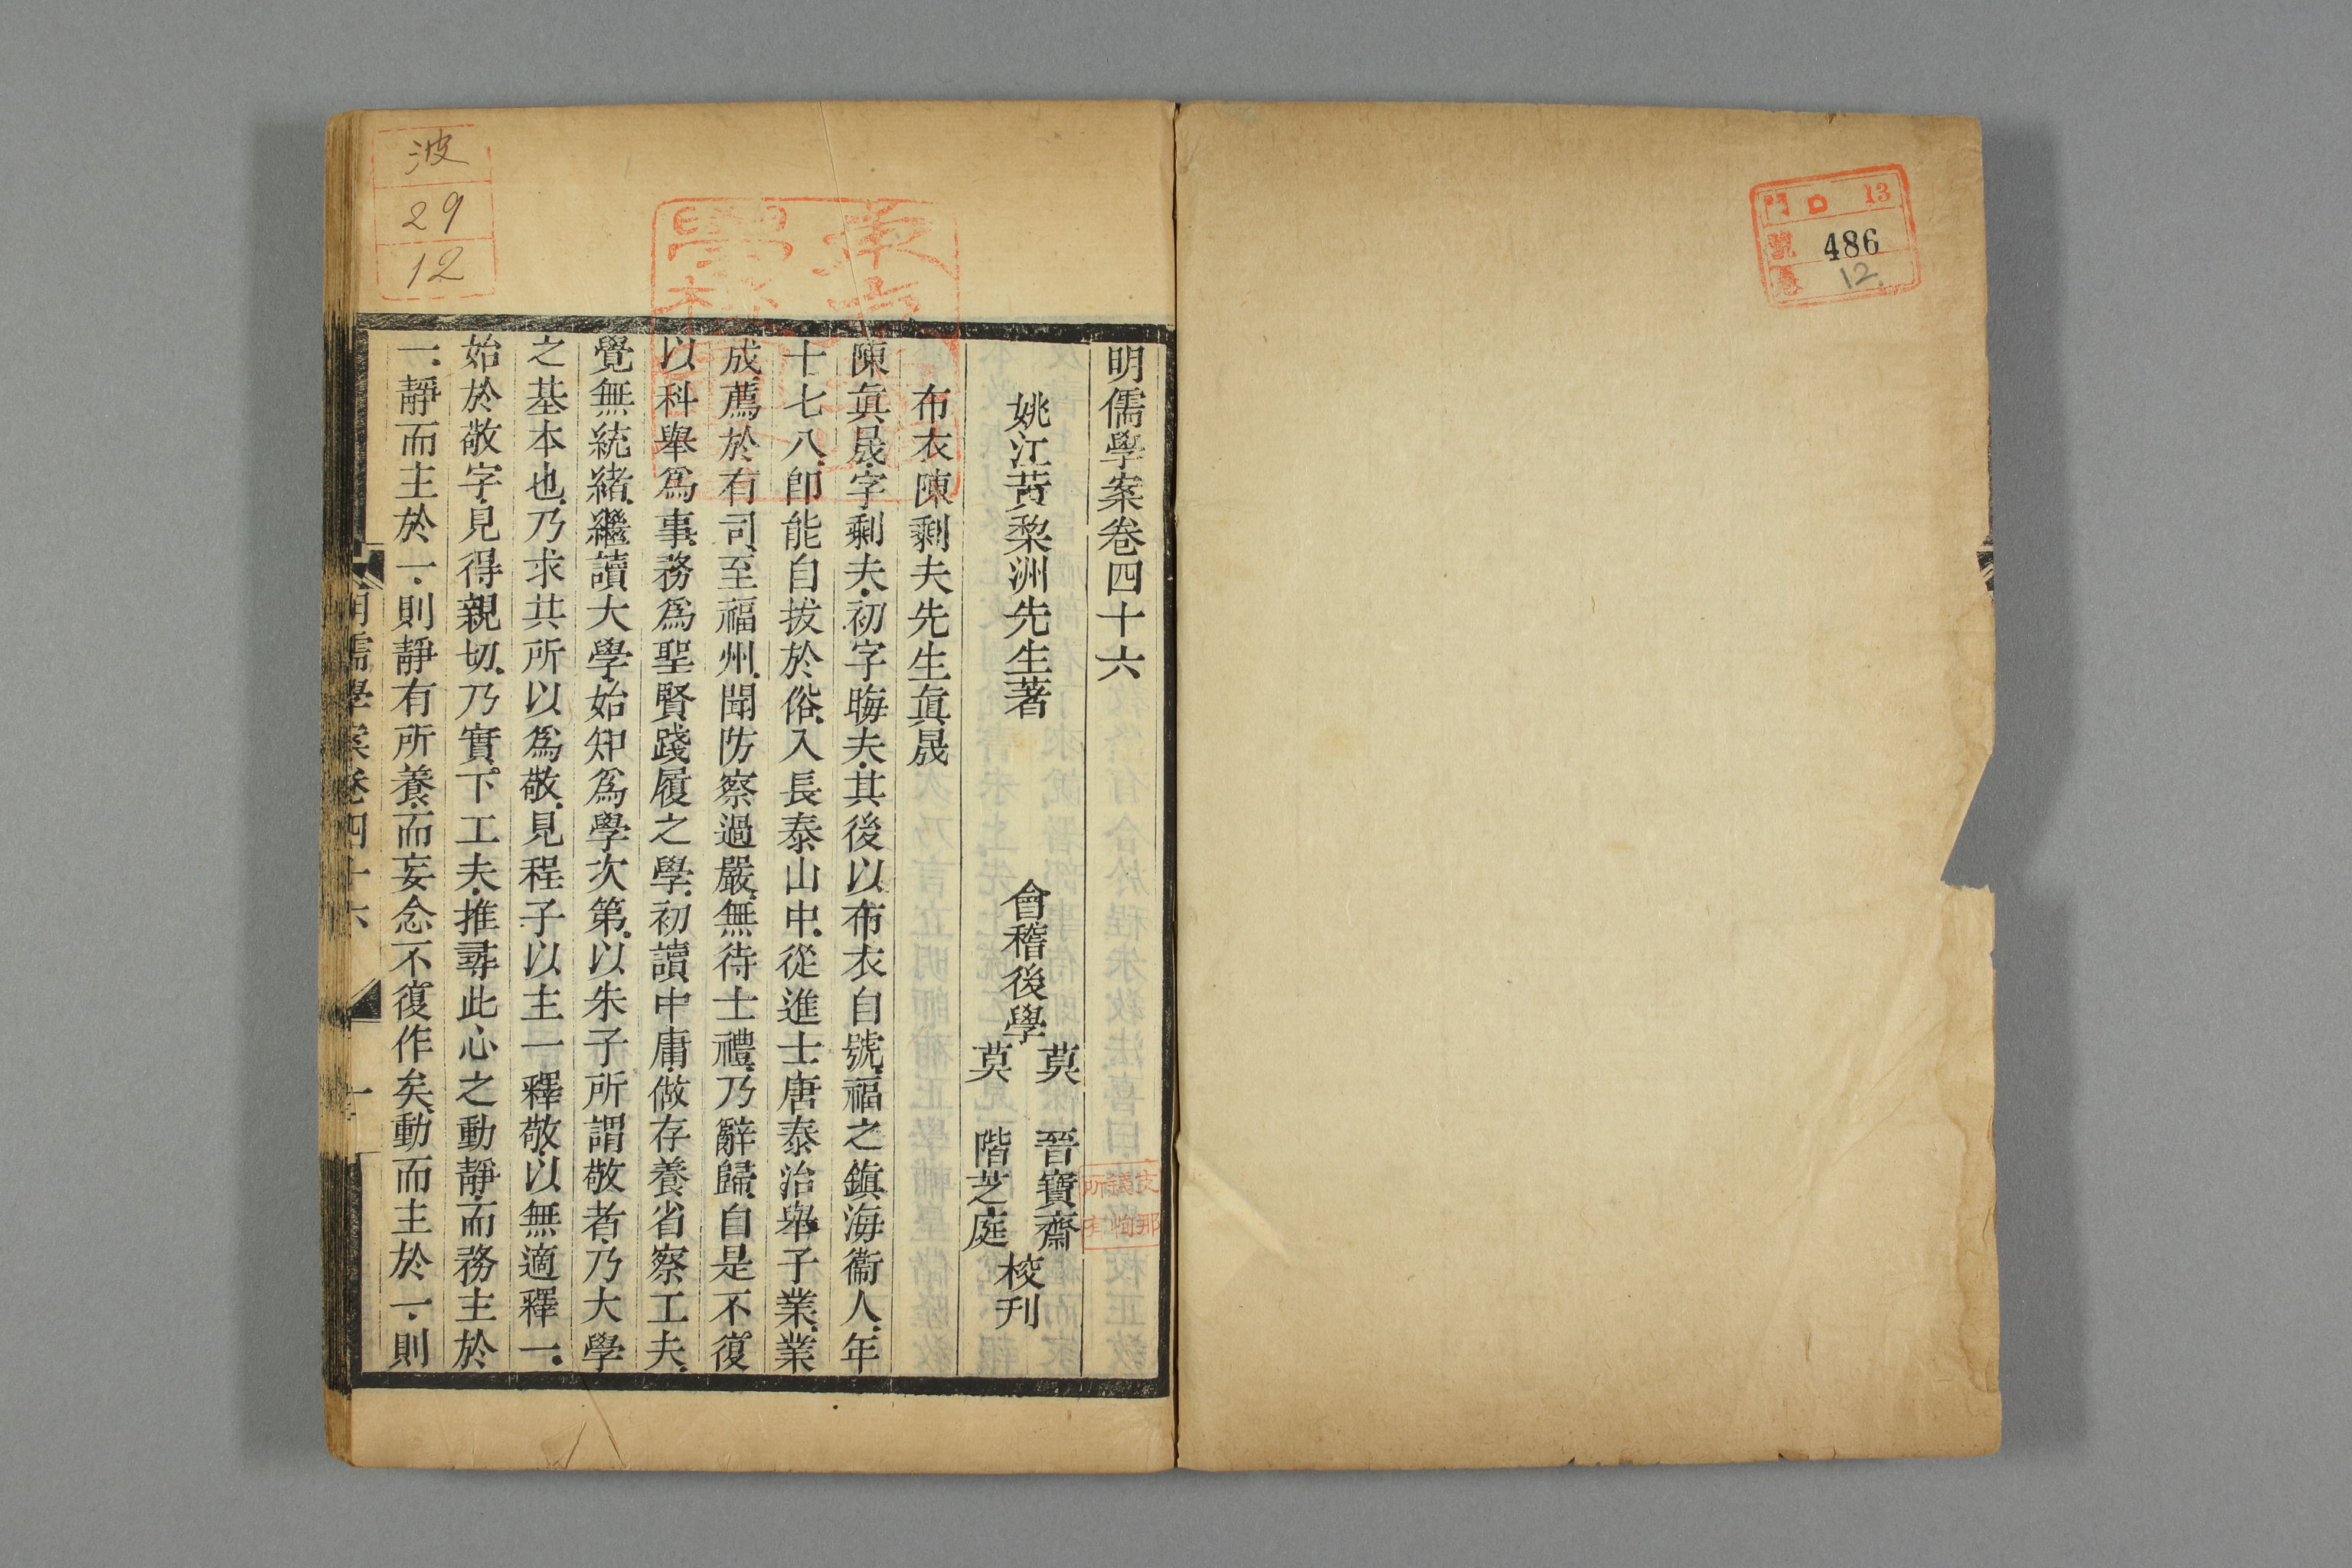 門 口 13
號 486
12
明儒學案卷四十六
姚江黃棃洲先生著
會稽後學
莫 晉寶齋
莫 階芝庭
校刊
布衣陳剩夫先生眞晟
陳眞晟字剩夫初字晦夫其後以布衣自號福之鎭海衞人年
十七八卽能自拔於俗入長泰山中從進士唐泰治舉子業業
成薦於有司至福州聞防察過嚴無待士禮乃辭歸自是不復
以科舉爲事務爲聖賢踐履之學初讀中庸做存養省察工夫
覺無統緒繼讀大學始知爲學次第以朱子所謂敬者乃大學
之基本也乃求其所以爲敬見程子以主一釋敬以無適釋一
始於敬字見得親切乃實下工夫推尋此心之動靜而務主於
一靜而主於一則靜有所養而妄念不復作矣動而主於一則
明儒學案卷四十六
一
波
29
12